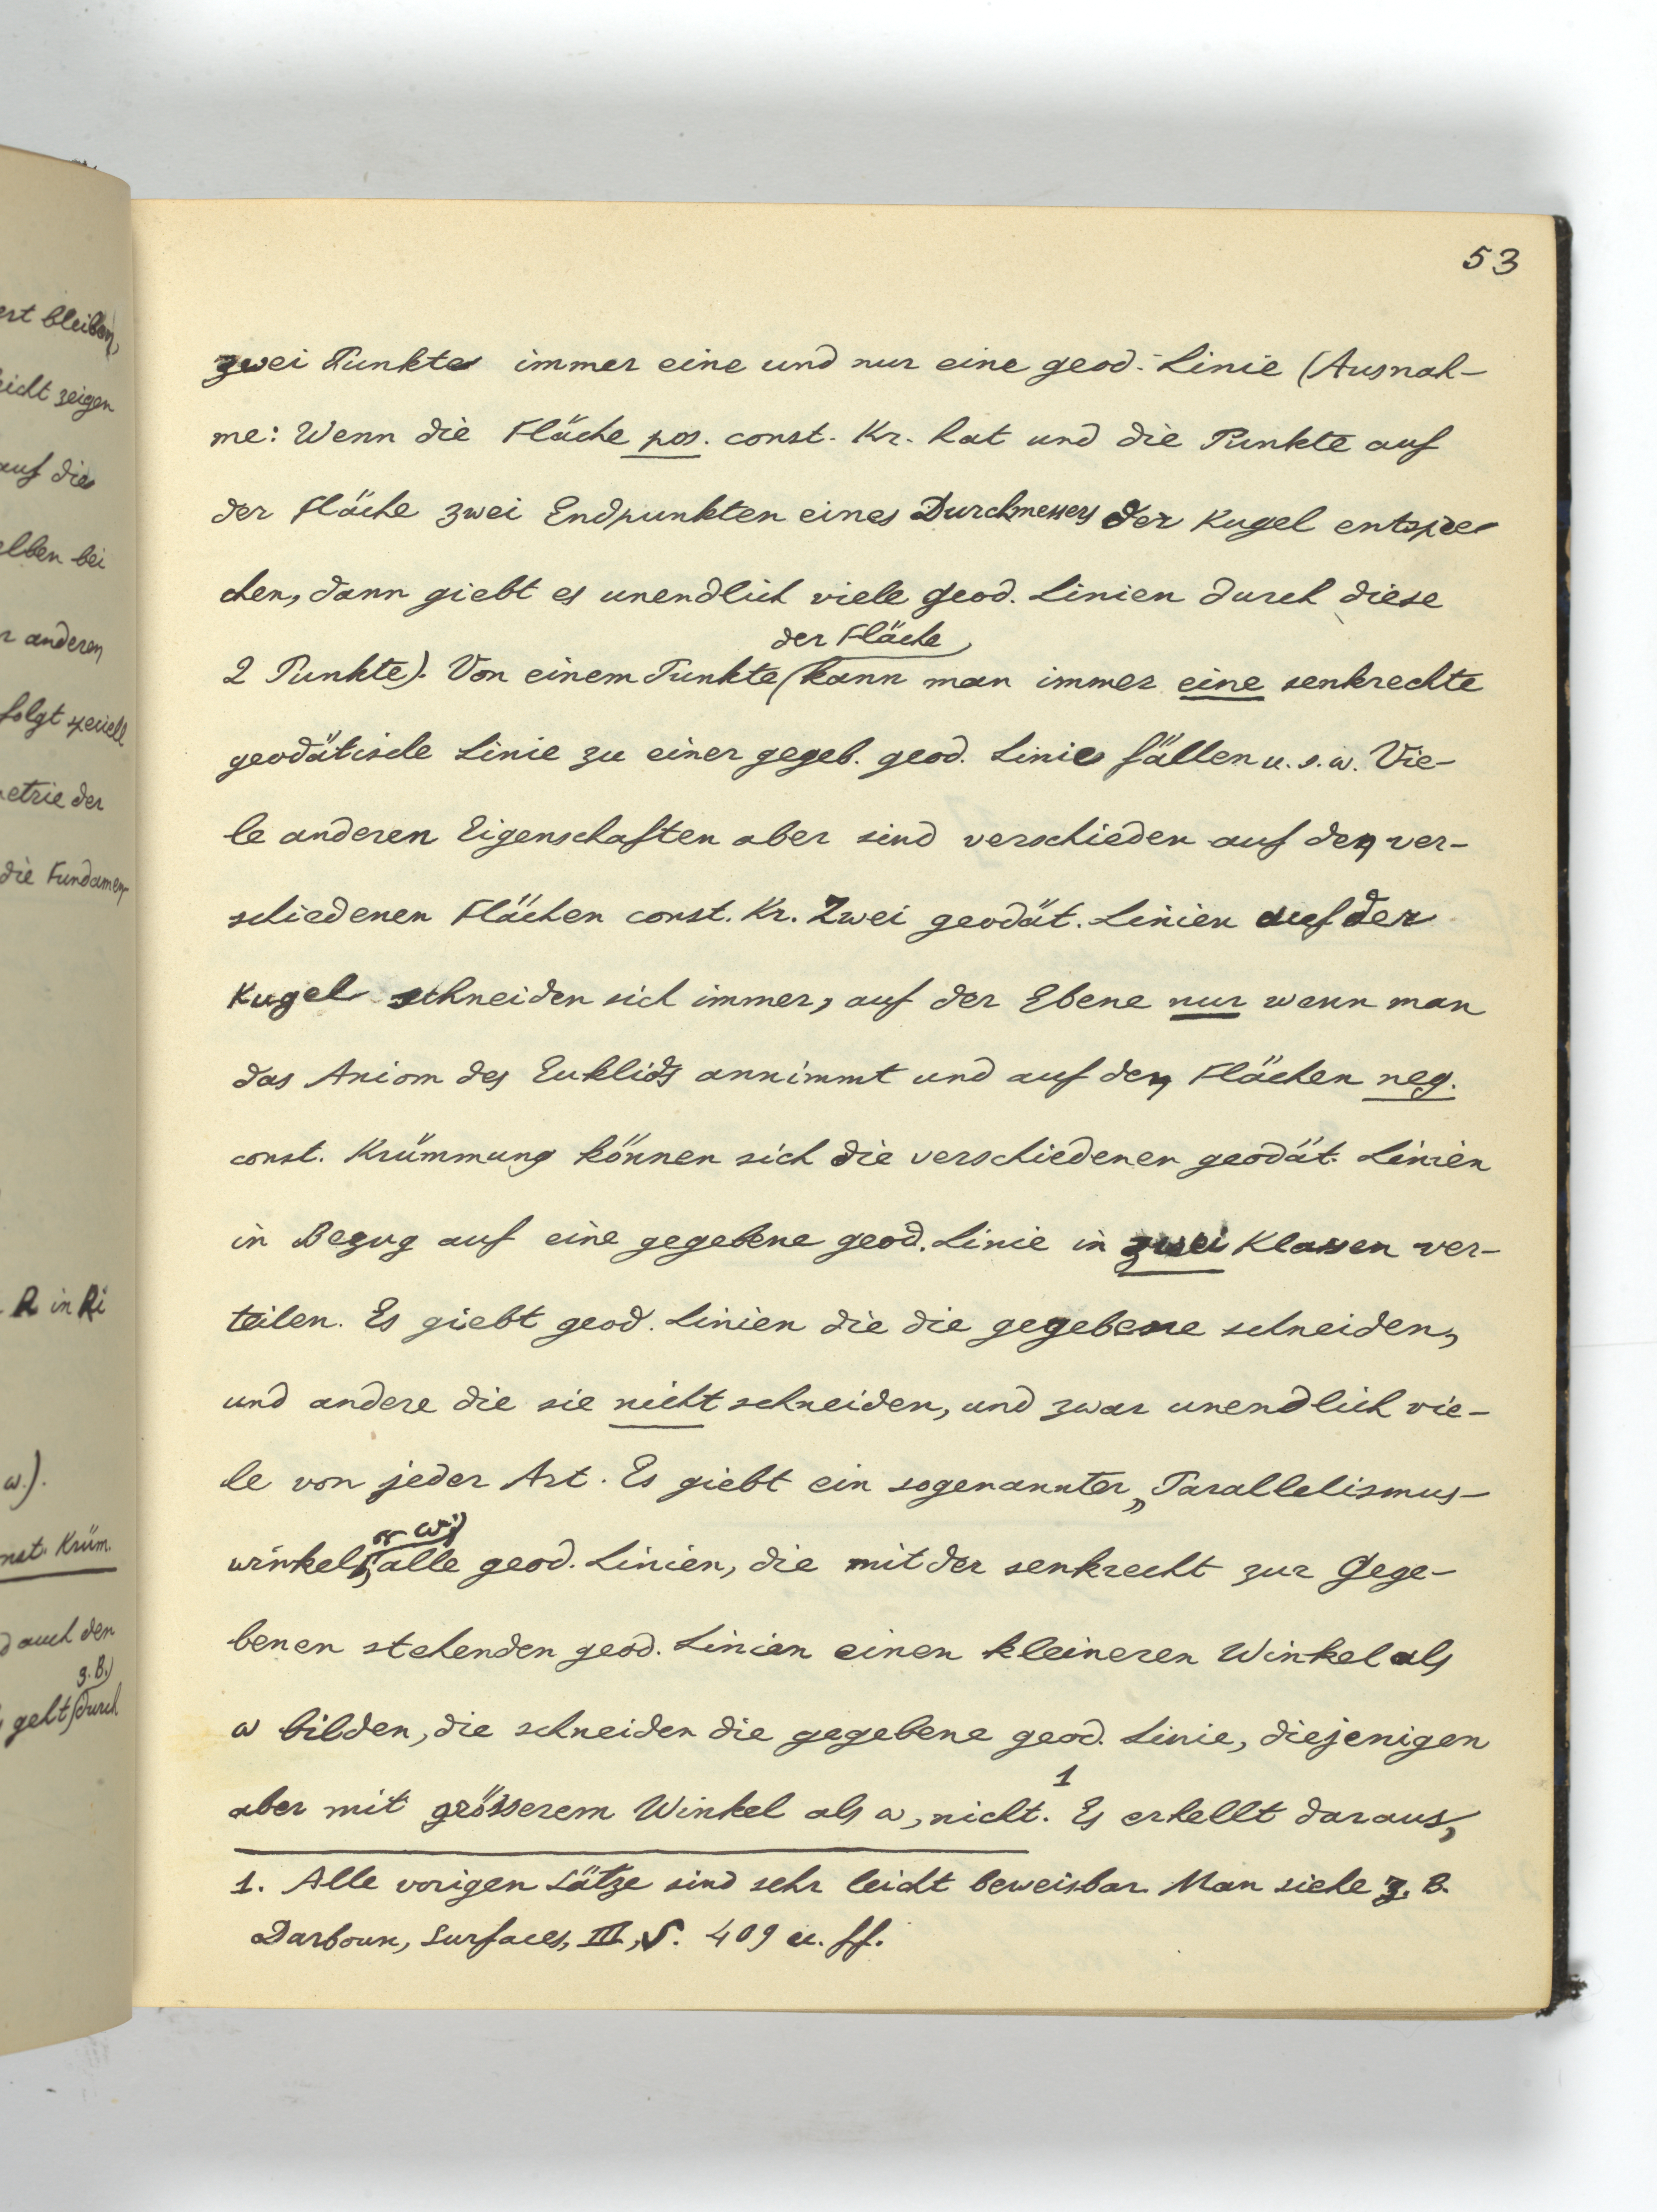 ert bleiben,
eicht zeigen
auf die
elben bei
r anderen
folgt speciell
etrie der
die Fundamen-
R in Ri
w.).
nst. Krüm.
d auch den
z.B.
geht durch
53
zwei Punkte immer eine und nur eine geod. Linie (Ausnah-
me: Wenn die Fläche pos. const. Kr. hat und die Punkte auf
der Fläche zwei Endpunkten eines Durchmessers der Kugel entspre-
chen, dann giebt es unendlich viele geod. Linien durch diese
der Fläche
2 Punkte). Von einem Punkte kann man immer eine senkrechte
geodätische Linie zu einer gegeb. geod. Linie fällen u. s. w. Vie-
le anderen Eigenschaften aber sind verschieden auf den ver-
schiedenen Flächen const. Kr. Zwei geodät. Linien auf der
Kugel schneiden sich immer, auf der Ebene nur wenn man
das Axiom des Euklids annimmt und auf den Flächen neg.
const. Krümmung können sich die verschiedenen geodät. Linien
in Bezug auf eine gegebene geod. Linie in zwei Klassen ver-
teilen. Es giebt geod. Linien die die gegebene schneiden,
und andere die sie nicht schneiden, und zwar unendlich vie-
le von jeder Art. Es giebt ein sogenannter „Parallelismus-
winkel" w; alle geod. Linien, die mit der senkrecht zur Gege-
benen stehenden geod. Linien einen kleineren Winkel als
w bilden, die schneiden die gegebene geod. Linie, diejenigen
aber mit grösserem Winkel als w, nicht.1 Es erhellt daraus,
1. Alle vorigen Sätze sind sehr leicht beweisbar. Man siehe z. B.
Darboux, Surfaces, III, S. 409 u. ff.